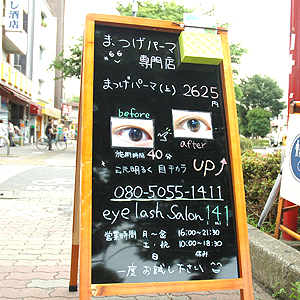 まつげパーマ
専門店
まつげパーマ(上) 2625円
before
after
施術時間 40分
UP
080-5055-1411
eyelash Salon 141
営業時間 月〜金 16:00〜21:30
土・祝 10:00〜18:30
日 休み
一度お試し下さい
し酒店